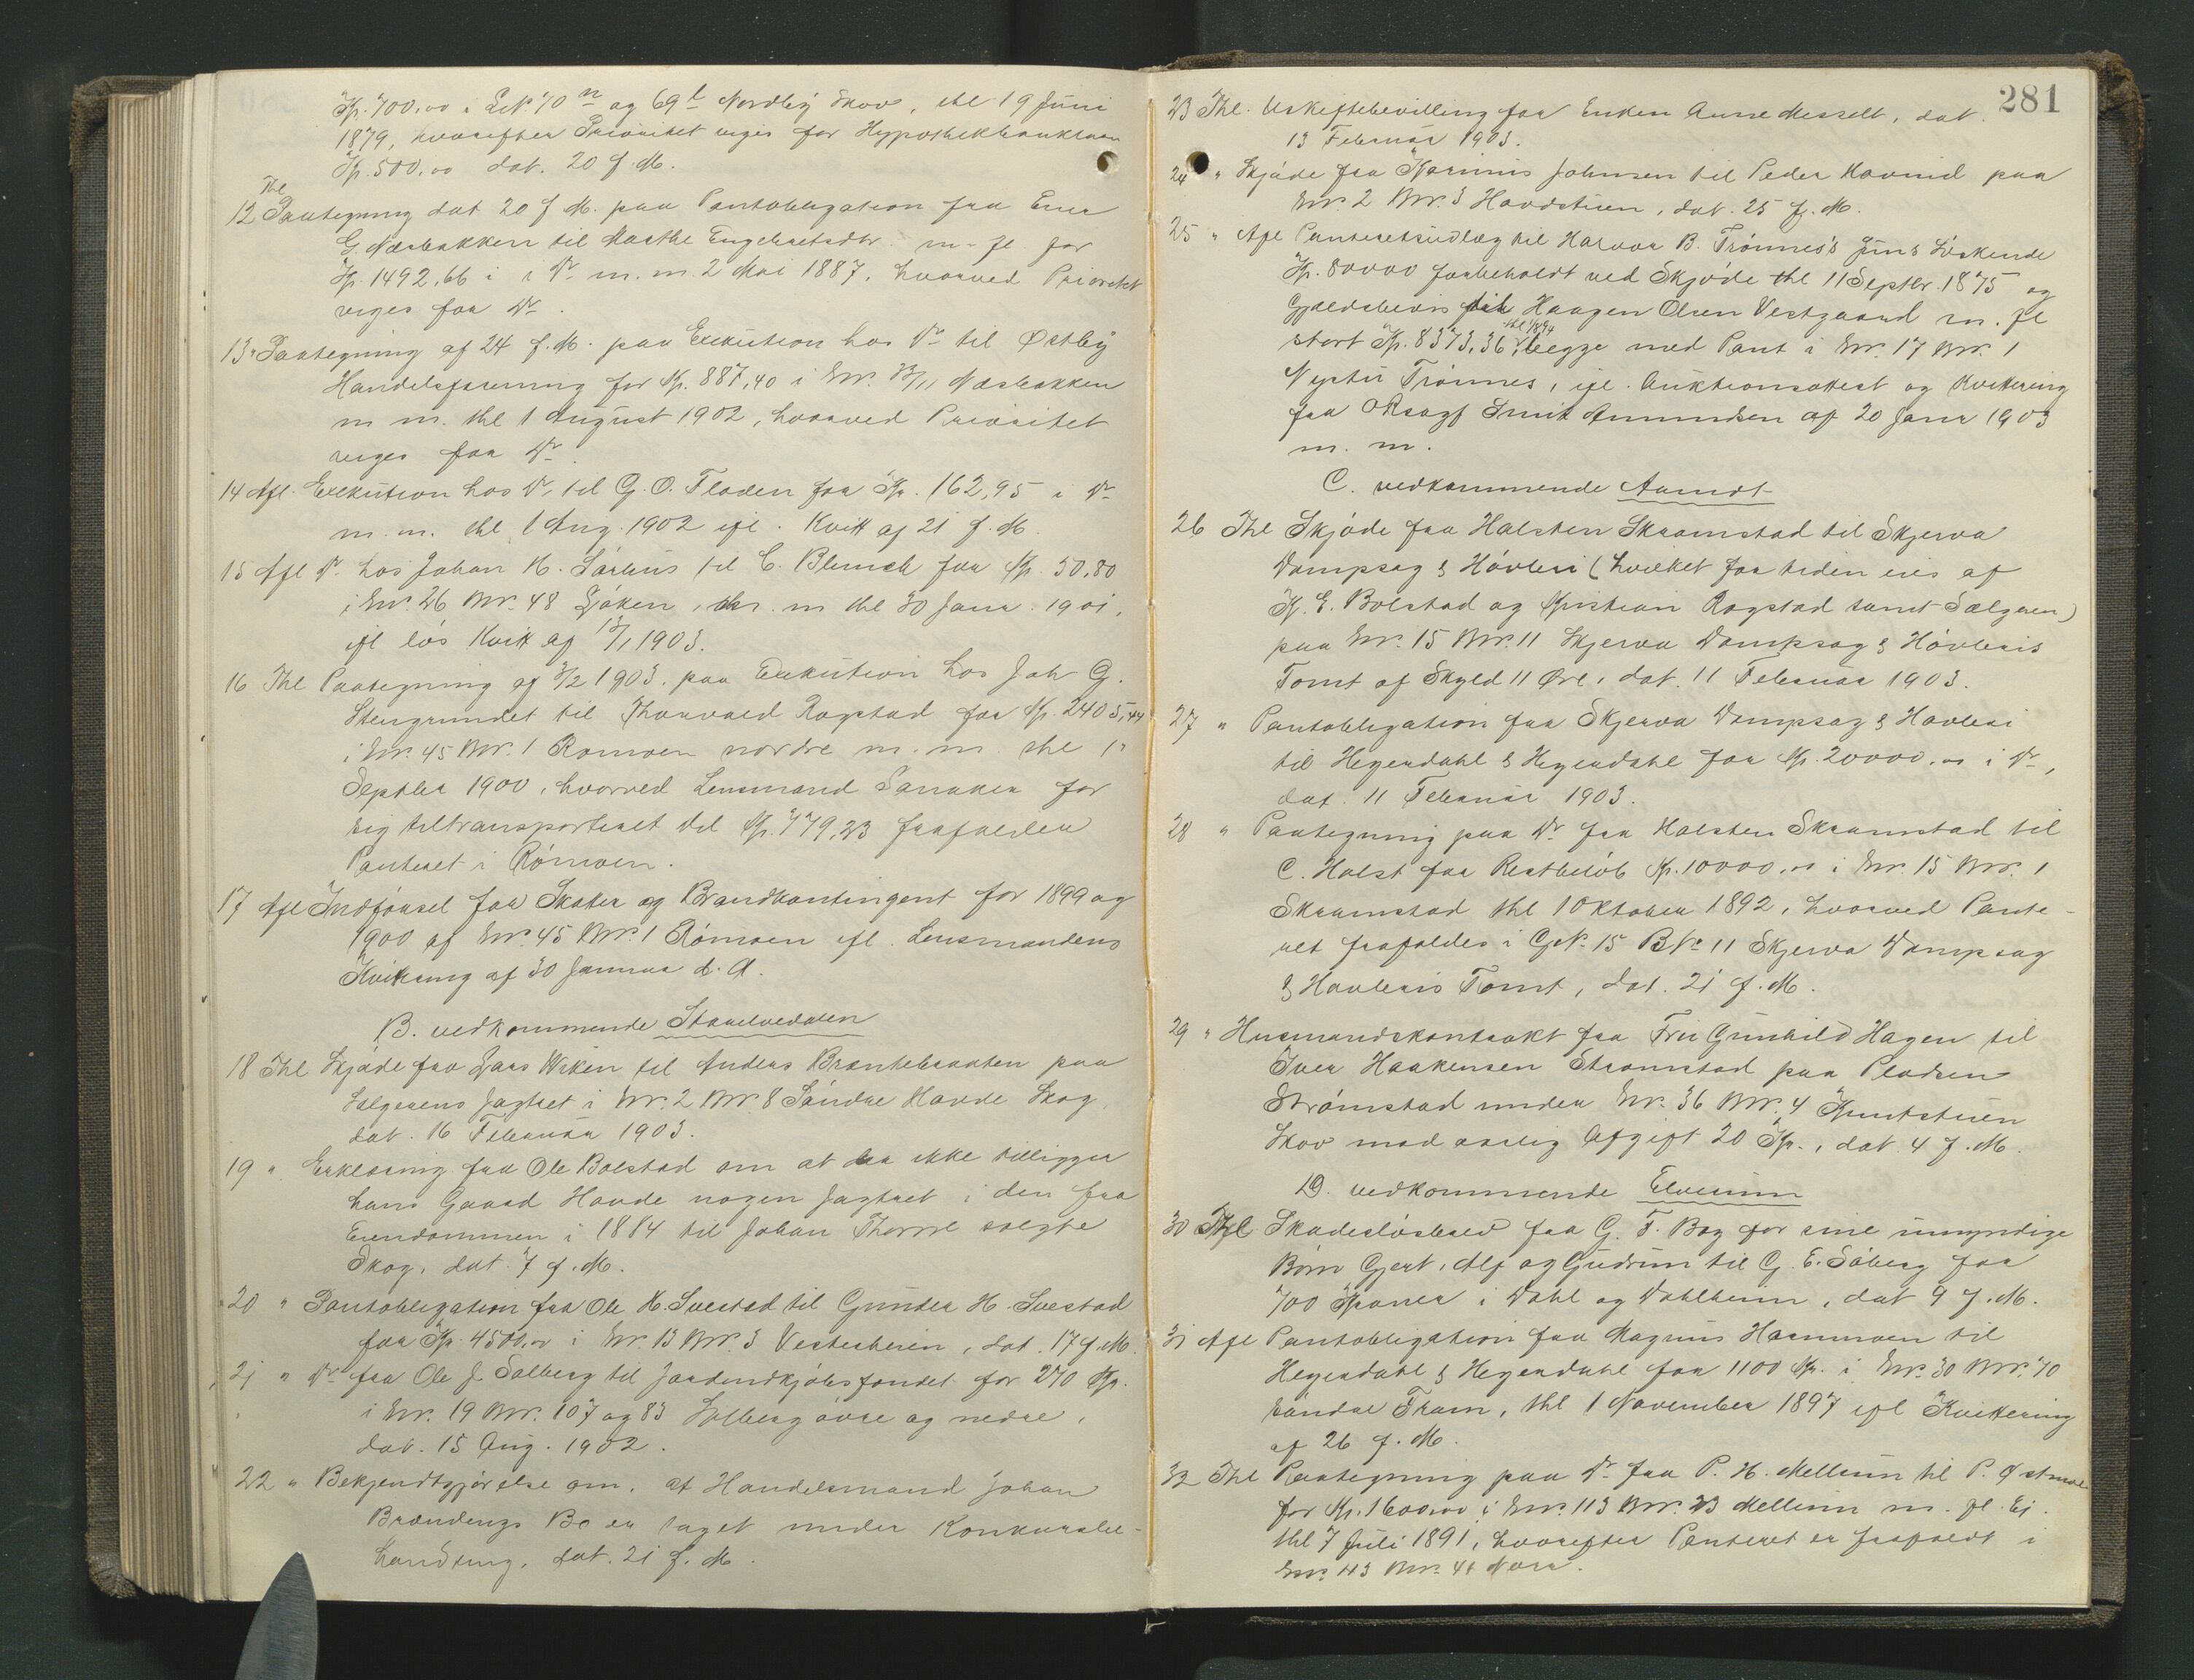 Kr. 700,00 i LNo 70 n og 69 l Nordby Skov, thl 19 Juni
1879, hvorefter Prioritet viges for Hypothekbanklaan
Kr. 500,00 dat. 20 f. M.
12 Thl Paategning dat 20 f M. paa Pantobligation fra Ener
G. Næsbakken til Marthe Engebretsdtr. m. fl for
Kr. 1492,66 i i Do m. m. 2 Mai 1887, hvorved Prioritet
viges for Do.
13 " Paategning af 24 f. M. paa Exekution hos Do til Østby
Handelsforening for Kr. 887,40 i Gno. /11 Næsbakken
m m. thl 1 August 1902, hvorved Prioritet
viges for Do.
14 Afl. Exekution hos Do. til G. O. Floden for Kr. 162,95 i Do
m. m. thl 1 Aug. 1902 ifl. Kvitt af 21 f. M.
15 Afl Do. hos Johan H. til C. Blunck for Kr. 50,80
i Gno. 26 Bno. 48 m. m thl 30 Janr. 1901,
ifl løs Kvitt af 13/1 1903.
16 Thl Paategning af 3/2 1903. paa Exekution hos Joh G.
Stengrundet til Thorvald Rogstad for Kr. 2405,44
i Gno. 45 Bno. 1 Romoen nordre m. m. thl 1
Septbr 1900, hvorved Lensmand for
sig tiltransporteret Del Kr. 779,23 frafalder
Panteret i Rómoen.
17 Afl Indførsel for Skatter og Brandkontingent for 1899 og
1900 af Gno. 45 Bno. 1 Rómoen ifl. Lensmandens
Kvittering af 30 Januar d. A.
B. vedkommende Storelvedalen
18 Thl Skjøde fra Lars Wiken til Anders Brontebraaten paa
Sælgerens Jagtret i Gno. 2 Bno. 8 Søndre Hovde Skog
dat. 16 Februar 1903.
19 " Erklæring fra Ole Bolstad om at der ikke tilligger
hans Gaard Hovde nogen Jagtret i den fra
Eiendommen i 1884 til Johan Thorne solgte
Skog, dat. 7 f. M.
20 " Pantobligation fra Ole H. Svestad til Gunder H. Svestad
for Kr. 4500,00 i Gno. 13 Bno. 3 Vesterheim, dat. 17 f. M.
21 " Do fra Ole J. Solberg til Jordindkjøbsfondet for 270 Kr.
i Gno. 19 Bno. 107 og 83 Solberg øvre og nedre,
dat. 15 Aug. 1902.
22 " Bekjendtgjørelse om, at Handelsmand Johan
Brændengs Bo er taget under Konkursbe-
handling, dat. 21 f. M.
281
23 Thl. Uskiftebevilling for Enken Anne Messelt, dat.
13 Februar 1903.
24 " Skjøde fra Karinus Johnsen til Peder Hovind paa
Gno. 2 Bno. 3 Hovdstuen, dat. 25 f. M.
25 " Afl Panteretsudlæg til Halvor B. Trónnes's
Kr. 80000 forbeholdt ved Skjøde thl 11 Septbr. 1875 og
Gjældsbevis til Haagen Olsen Vestgaard m. fl
stort Kr. 8373,36, begge med Pant i Gno. 17 Bno. 1
Nystu Trønnes, ifl. Auktionsattest og Kvittering
fra ORsagf Smit Amundsen af 20 Janr 1903
m. m.
C. vedkommende Aamot
26 Thl Skjøde fra Halsten Skramstad til Skjerva
Dampsag & Høvleri (hvilket for tiden eies af
K. E. Bolstad og Kristian Rogstad samt Sælgeren)
paa Gno. 15 Bno. 11 Skjerva Dampsag & Høvleris
Tomt af Skyld 11 Øre, dat. 11 Februar 1903.
27 " Pantobligation fra Skjerva Dampsag & Høvleri
til Hegerdahl & Hegerdahl for Kr. 20000,00 i Do,
dat. 11 Februar 1903.
28 " Paategning paa Do fra Halsten Skramstad til
C. Holst for Restbeløb Kr. 10000,00 i Gno. 15 Bno. 1
Skramstad thl 1 Oktober 1892, hvorved Pante-
ret frafaldes i GNo. 15 BNo 11 Skjerva Dampsag
& Høvleris Tomt, dat. 21 f. M.
29 " Husmandskontrakt fra Fru Gunhild Hagen til
Iver Haakensen Strømstad paa Pladsen
Strømstad under Gno. 36 Bno. 4 Kuntstuen
Skov mod aarlig Afgift 20 Kr., dat. 4 f. M.
D. vedkommende Elverum
30 Thl. Skadesløsbrev fra G. F. Bog for sine umyndige
Børn Gert, Alf og Gudrun til G. E. Søberg for
700 Kroner i Dahl og Dahlheim, dat 9 f. M.
31 Afl Pantobligation fra Magnus Hammoen til
Hegerdahl & Hegerdahl for 1100 Kr. i Gno. 30 Bno. 70
søndre Fram, thl 1 November 1897 ifl Kvittering
af 26 f. M.
32 Thl Paategning paa Do fra P. H. Mellum til P. Østmoe
for Kr. 1600,00 i Gno. 113 Bno. 23 Mellum m. fl. Ei.
thl 7 Juli 1891, hvorefter Panteret er frafaldt i
Gno. 113 Bno. 41 Nora.